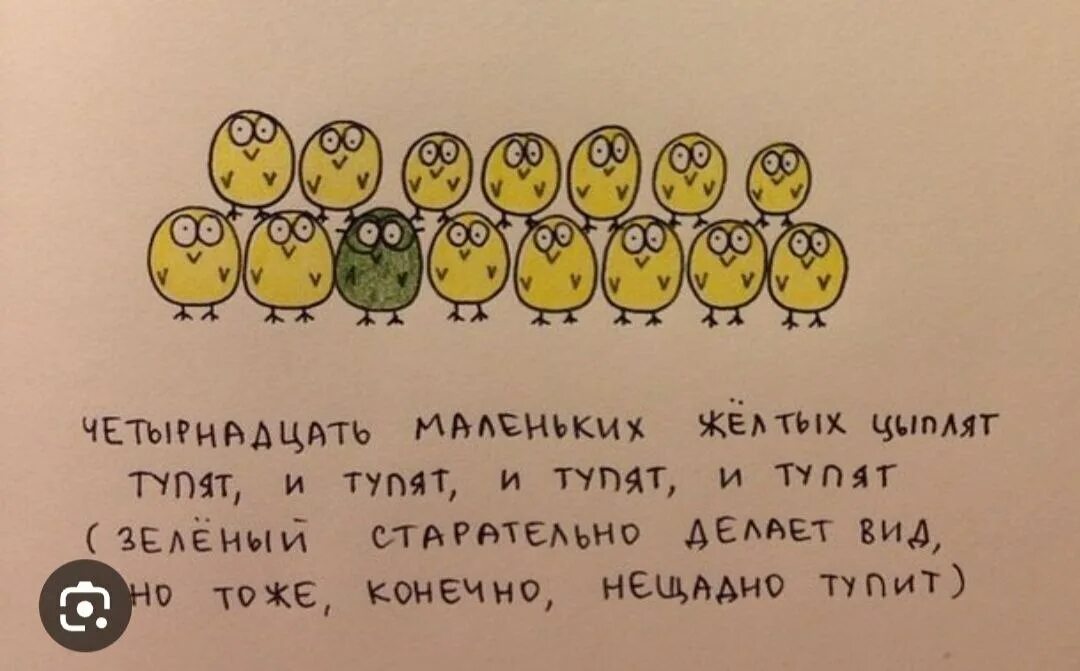 ЧЕТЫРНАДЦАТЬ МАЛЕНЬКИХ ЖЁЛТЫХ ЦЫПЛЯТ
ТУПЯТ, И ТУПЯТ, И ТУПЯТ, И ТУПЯТ
(ЗЕЛЁНЫЙ СТАРАТЕЛЬНО ДЕЛАЕТ ВИД,
НО ТОЖЕ, КОНЕЧНО, НЕЩАДНО ТУПИТ)